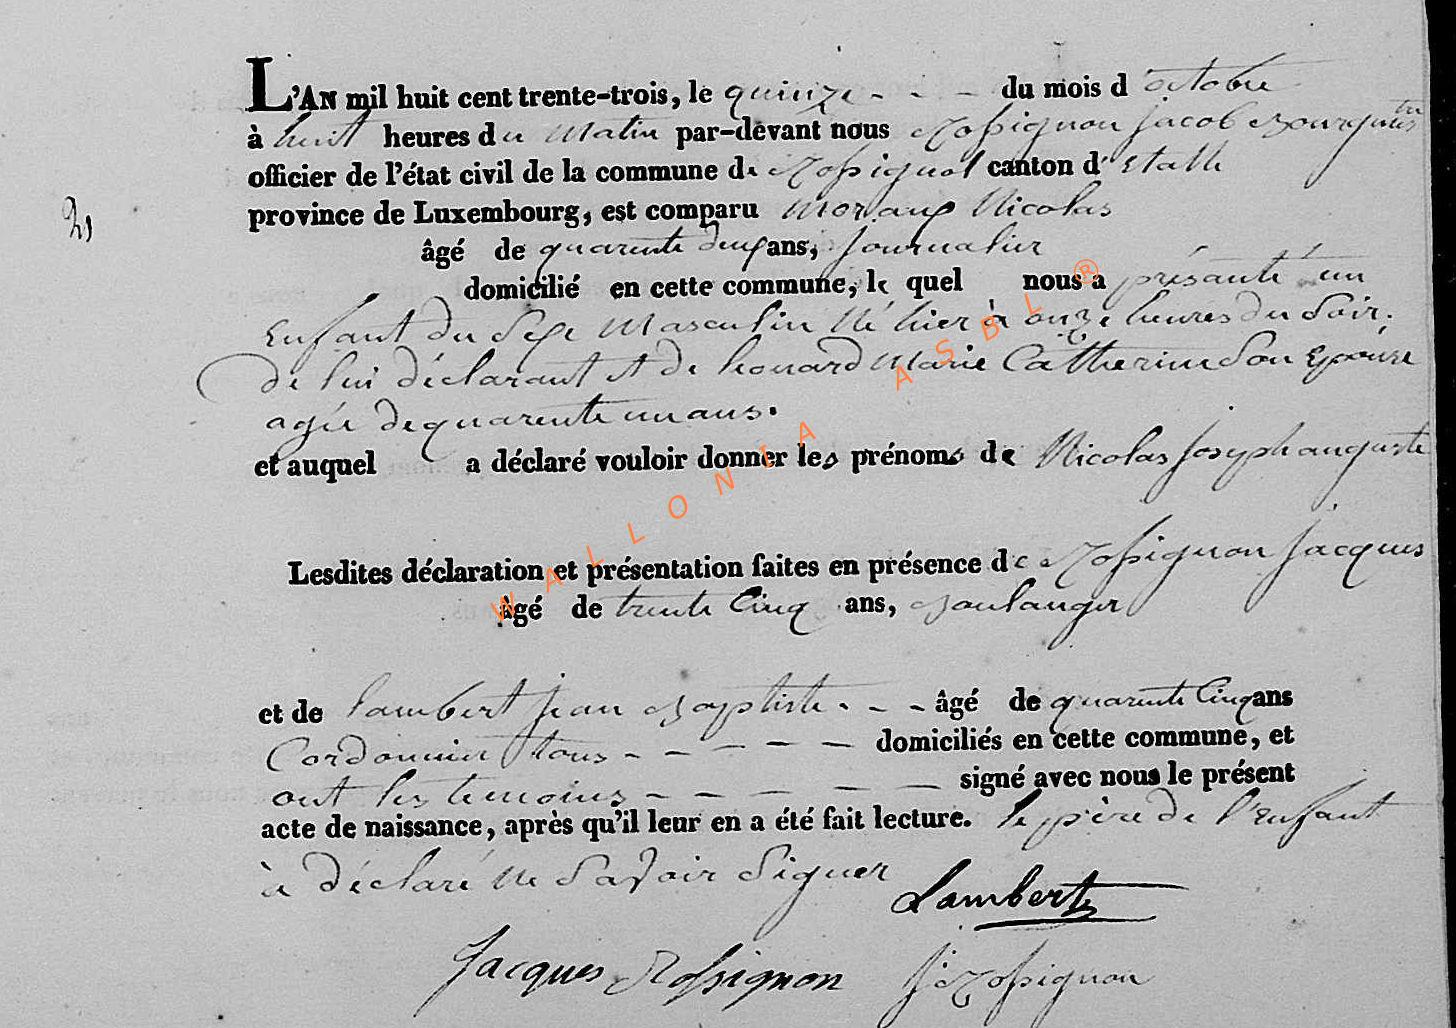 L'AN mil huit cent trente-trois, le quinze - - - du mois d'octobre
à huit heures du matin par-devant nous Rossignon Jacob Bourgmestre
officier de l'état civil de la commune de Rossignol canton d'Etalle
province de Luxembourg, est comparu Moraux Nicolas
âgé de quarente deux ans, journalier
domicilié en cette commune, le quel nous a présanté un
Enfant du Sexe Masculin Né hier à onze heures du Soir.
de lui déclarant et de Henard Marie Catherine Son Epouse
agée de quarente un ans.
et auquel a déclaré vouloir donner les prénoms de Nicolas Joseph auguste
Lesdites déclaration et présentation faites en présence de Rossignon Jacques
âgé de trente Cinq ans, Boulanger
et de Lambert Jean Baptiste - - - âgé de quarente Cinq ans
Cordonnier tous - - - - - domiciliés en cette commune, et
ont les temoins - - - - - signé avec nous le présent
acte de naissance, après qu'il leur en a été fait lecture. le père de l'Enfant
à déclaré Ne Savoir Signer
Lambert
Jacques Rossignon J Rossignon
WALLONIA ASBL ®